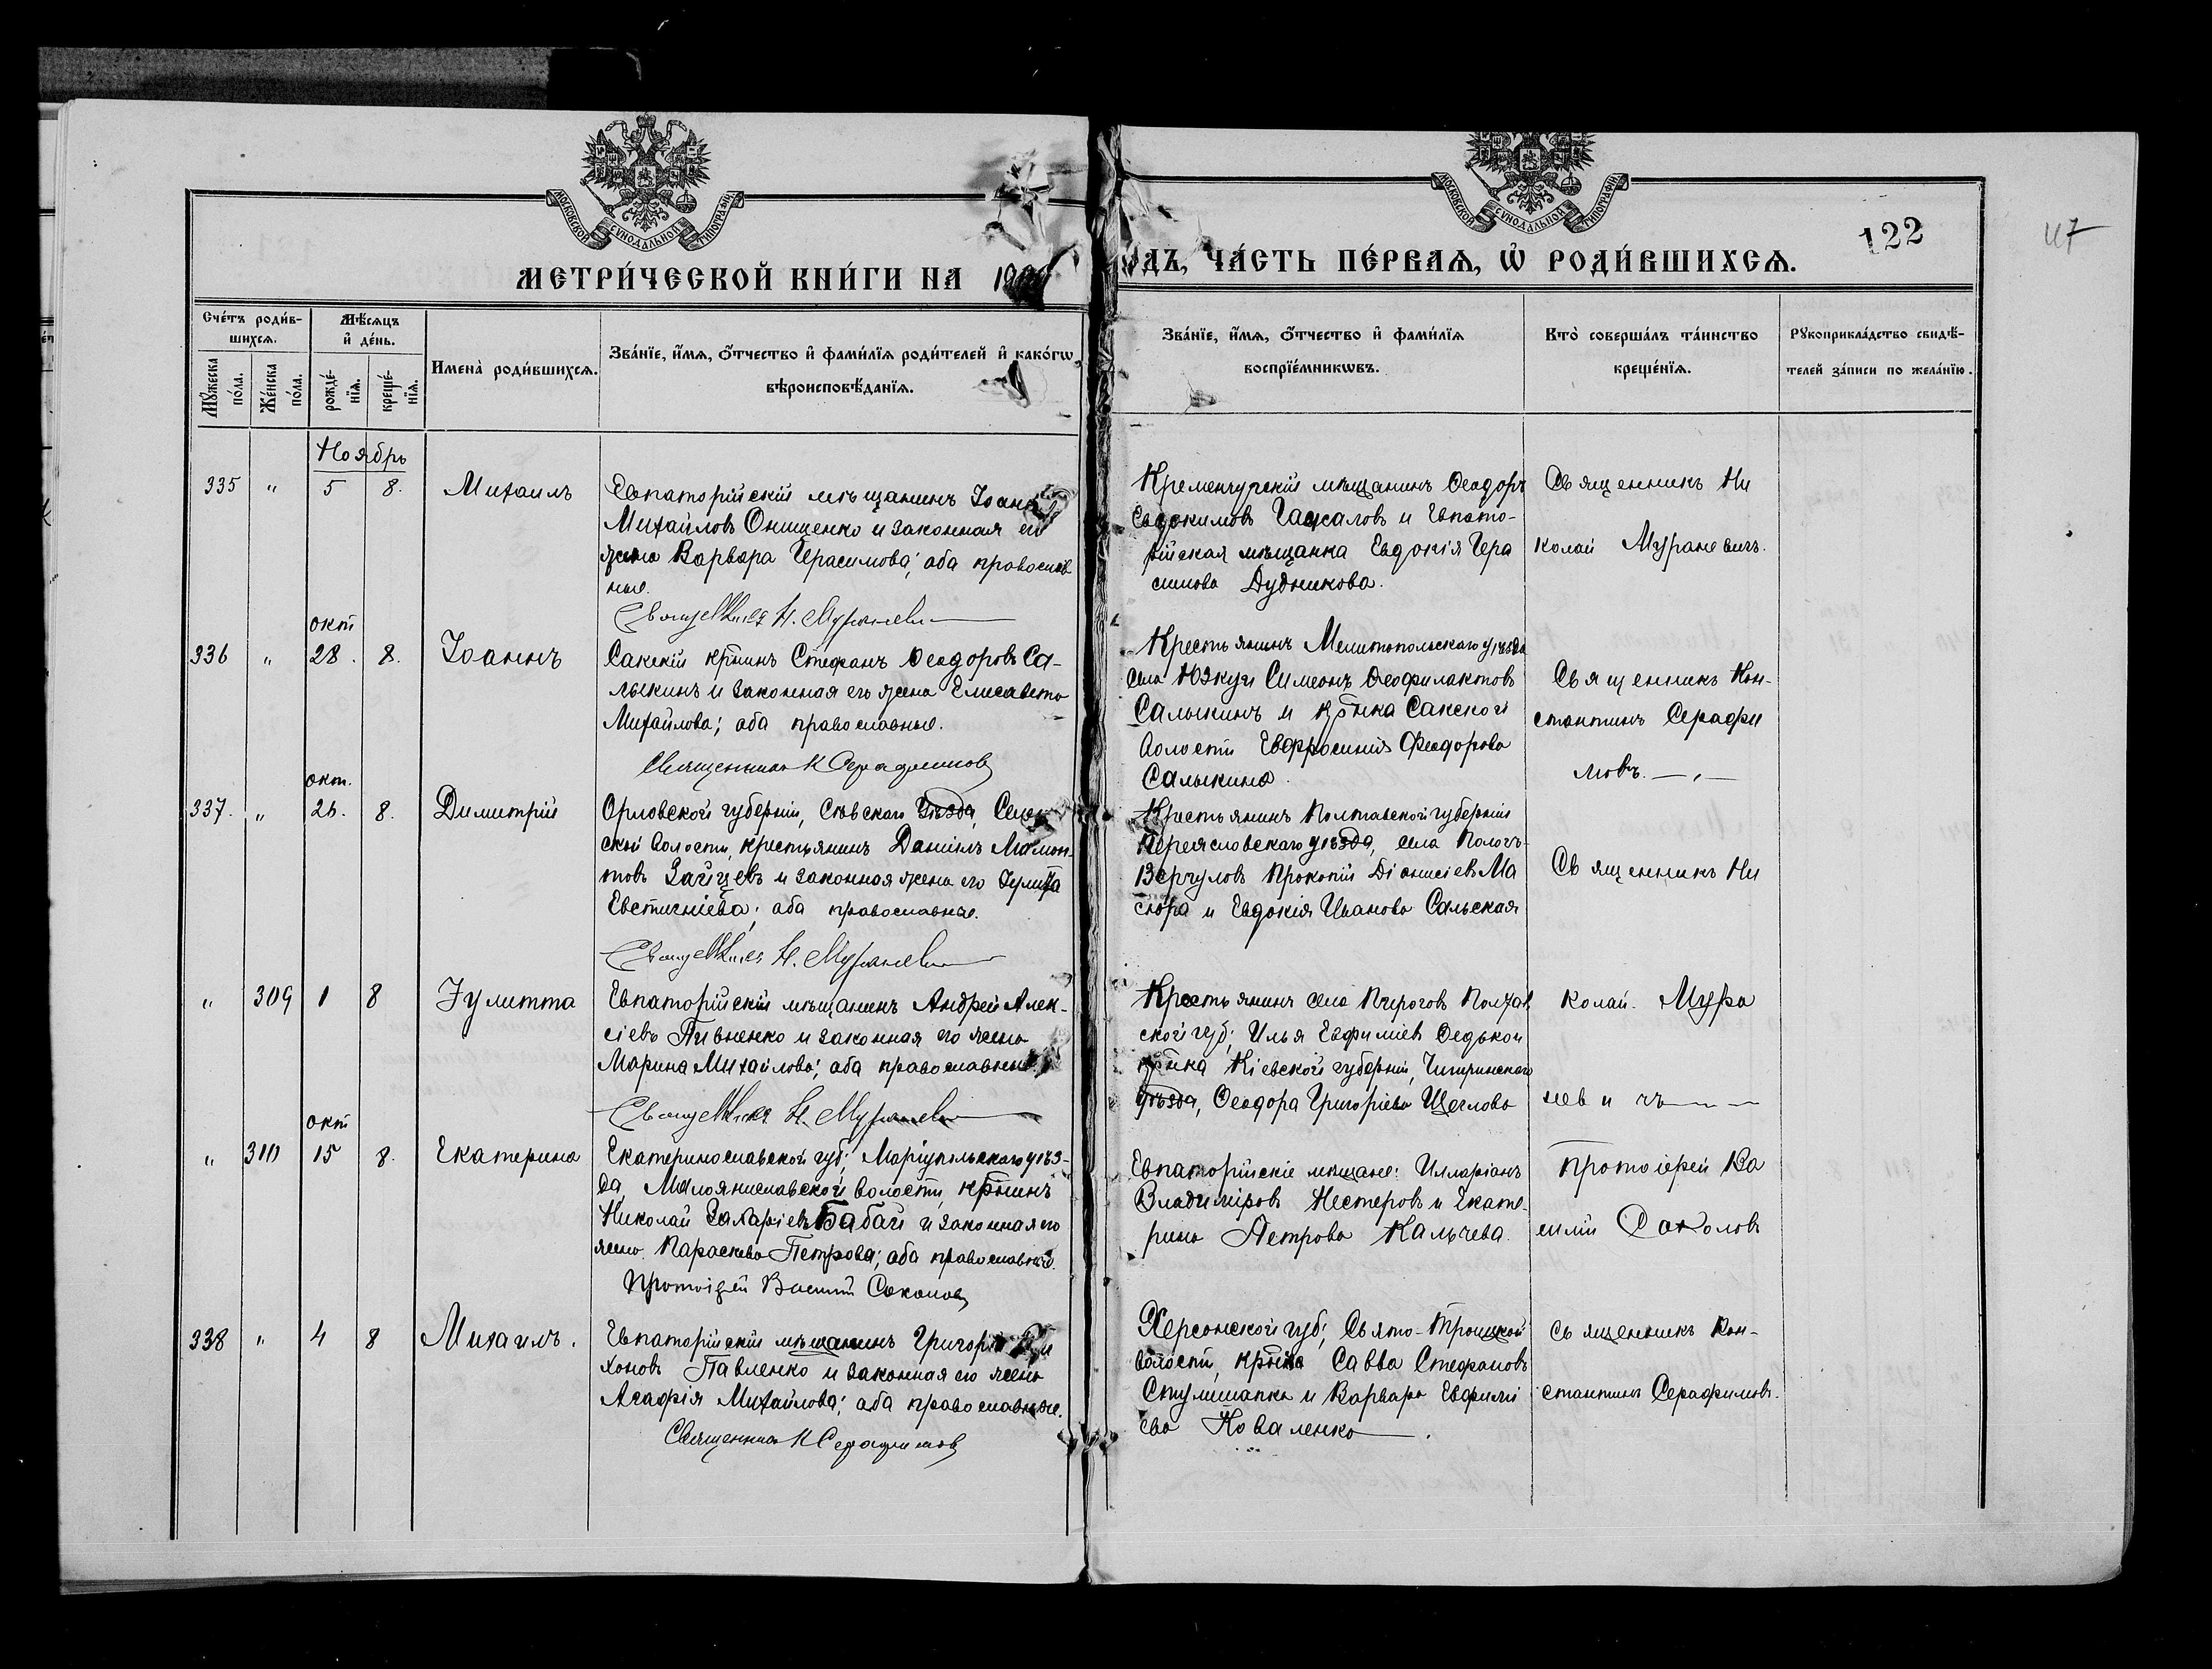 МОСКОВСКОЙ СУНОДАЛЬНОЙ ТИПОГРАФІИ
МОСКОВСКОЙ СУНОДАЛЬНОЙ ТИПОГРАФІИ
122
МЕТРИ́ЧЕСКОЙ КНИ́ГИ НА
ДЪ, ЧА́СТЬ ПЕ́РВАѦ, Ѡ҆ РОДИ́ВШИХСѦ.
Сче́тъ роди́в-
шихсѧ.
Мꙋ́жеска по́ла.
Же́нска по́ла.
Мѣ́сѧцъ
и҆ де́нь.
рожде́-
нїѧ.
креще́-
нїѧ.
Имена̀ роди́вшихсѧ.
Зва́нїе, и҆́мѧ, ѻ҆́тчество и҆ фами́лїѧ роди́телей и҆ како́гѡ
вѣроисповѣ́данїѧ.
Зва́нїе, и҆́мѧ, ѻ҆́тчество и҆ фами́лїѧ
воспрїе́мникѡвъ.
Кто̀ соверша́лъ та́инство
креще́нїѧ.
Рꙋкоприкла́дство свидѣ́-
телей за́писи по жела́нїю.
Ноябрь
335 " 5 8. Михаилъ
Евпаторійскій мѣщанинъ Іоаннъ
Михайловъ Онищенко и законная его
жена Варвара Герасимова; оба православ
ные.
Священникъ Н. Мураневи
Кременчугскій мѣщанинъ Ѳеодоръ
Евдокимовъ и Евпато-
рійская мѣщанка Евдокія Гера
симова Дудникова.
Священникъ Ни
колай Мураневичъ.
окт
336 " 28. 8. Іоаннъ
Сакскій кр–нинъ Стефанъ Ѳеодоровъ Са-
лыкинъ и законная его жена Елисавета
Михайлова; оба православные.
Священникъ К Серафимовъ
Крестьянинъ Мелитопольскаго уѣзда
села Юзкуи Симеонъ Ѳеофилактовъ
Салыкинъ и кр–нка Сакской
волости Евфросинія Ѳеодорова
Салыкина.
Священникъ Кон-
стантинъ Серафи
мовъ.
окт.
337. " 26. 8. Димитрій
Орловской губерніи, Сѣвскаго уѣзда,
ской волости, крестьянинъ Даніилъ Мамон-
товъ Зайцевъ и законная жена его Іулита
Евстигніева; оба православные.
Священникъ Н. Мураневи
Крестьянинъ Полтавской губерніи
Переяславскаго уѣзда, села Пологъ-
Вергуловъ Прокопій Діонисіевъ Ма
сюра и Евдокія Иванова Сальская
Священникъ Ни
" 309 1 8 Іулитта
Евпаторійскій мѣщанинъ Андрей Алек-
сіевъ Пивненко и законная его жена
Марина Михайлова; оба православные.
Священникъ Н. Мураневи
Крестьянинъ села Пирогов Полтав
ской губ; Илья Евфиміев Ѳедько и
кр–нка Кіевской губерніи, Чигиринскаго
уѣзда, Ѳеодора Григоріева Щеглова
колай. Мура
невичъ
окт
" 310 15 8. Екатерина
Екатеринославской губ; Маріупольскаго уѣз-
да, Малоянисольской волости, кр–нинъ
Николай Захаріевъ Бабай и законная его
жена Параскева Петрова; оба православные.
Протоіерей Василій Соколовъ
Евпаторійскіе мѣщане: Илларіонъ
Владиміровъ Нестеровъ и Екате-
рина Петрова Кальчева.
Протоіерей Ва
силій Соколовъ
338 " 4 8 Михаилъ.
Евпаторійскій мѣщанинъ Григорій
хоновъ Павленко и законная его жена
Агафія Михайлова; оба православные.
Священникъ К Серафимовъ
Херсонской губ; Свято-Троицкой
волости, Савва Стефановъ
и Варвара Евфимі
ева Коваленко.
Священникъ Кон-
стантинъ Серафимовъ.